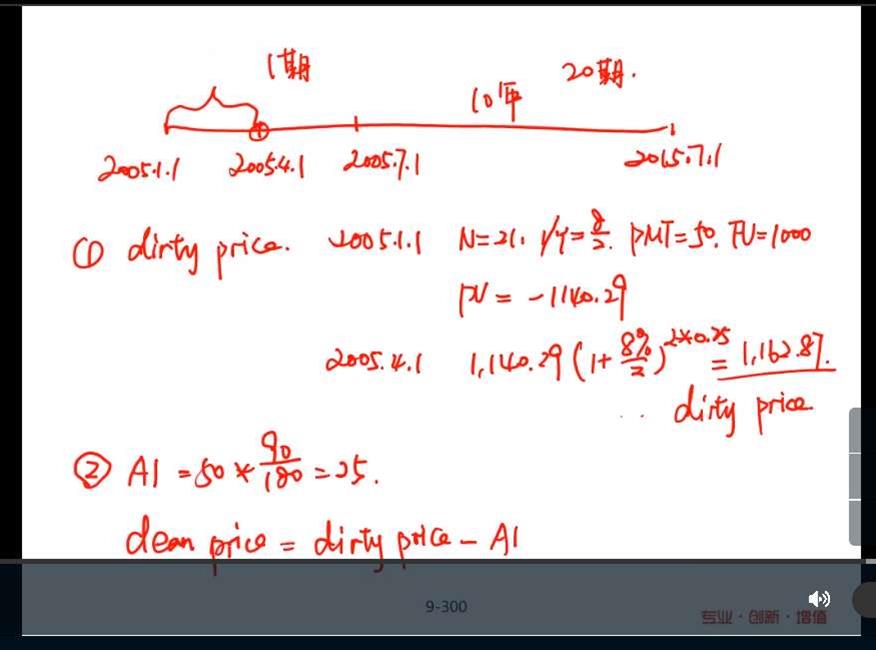 1期 10年 20期.
2005.1.1 2005.4.1 2005.7.1 2015.7.1
① dirty price. 2005.1.1 N=21. I/Y=8/2. PMT=50. FV=1000
PV = -1140.29
2005.4.1 1,140.29(1+8%/2)^2*0.25 = 1,162.87.
dirty price.
② AI = 50*90/180=25.
clean price = dirty price - AI
9-300
专业·创新·增值